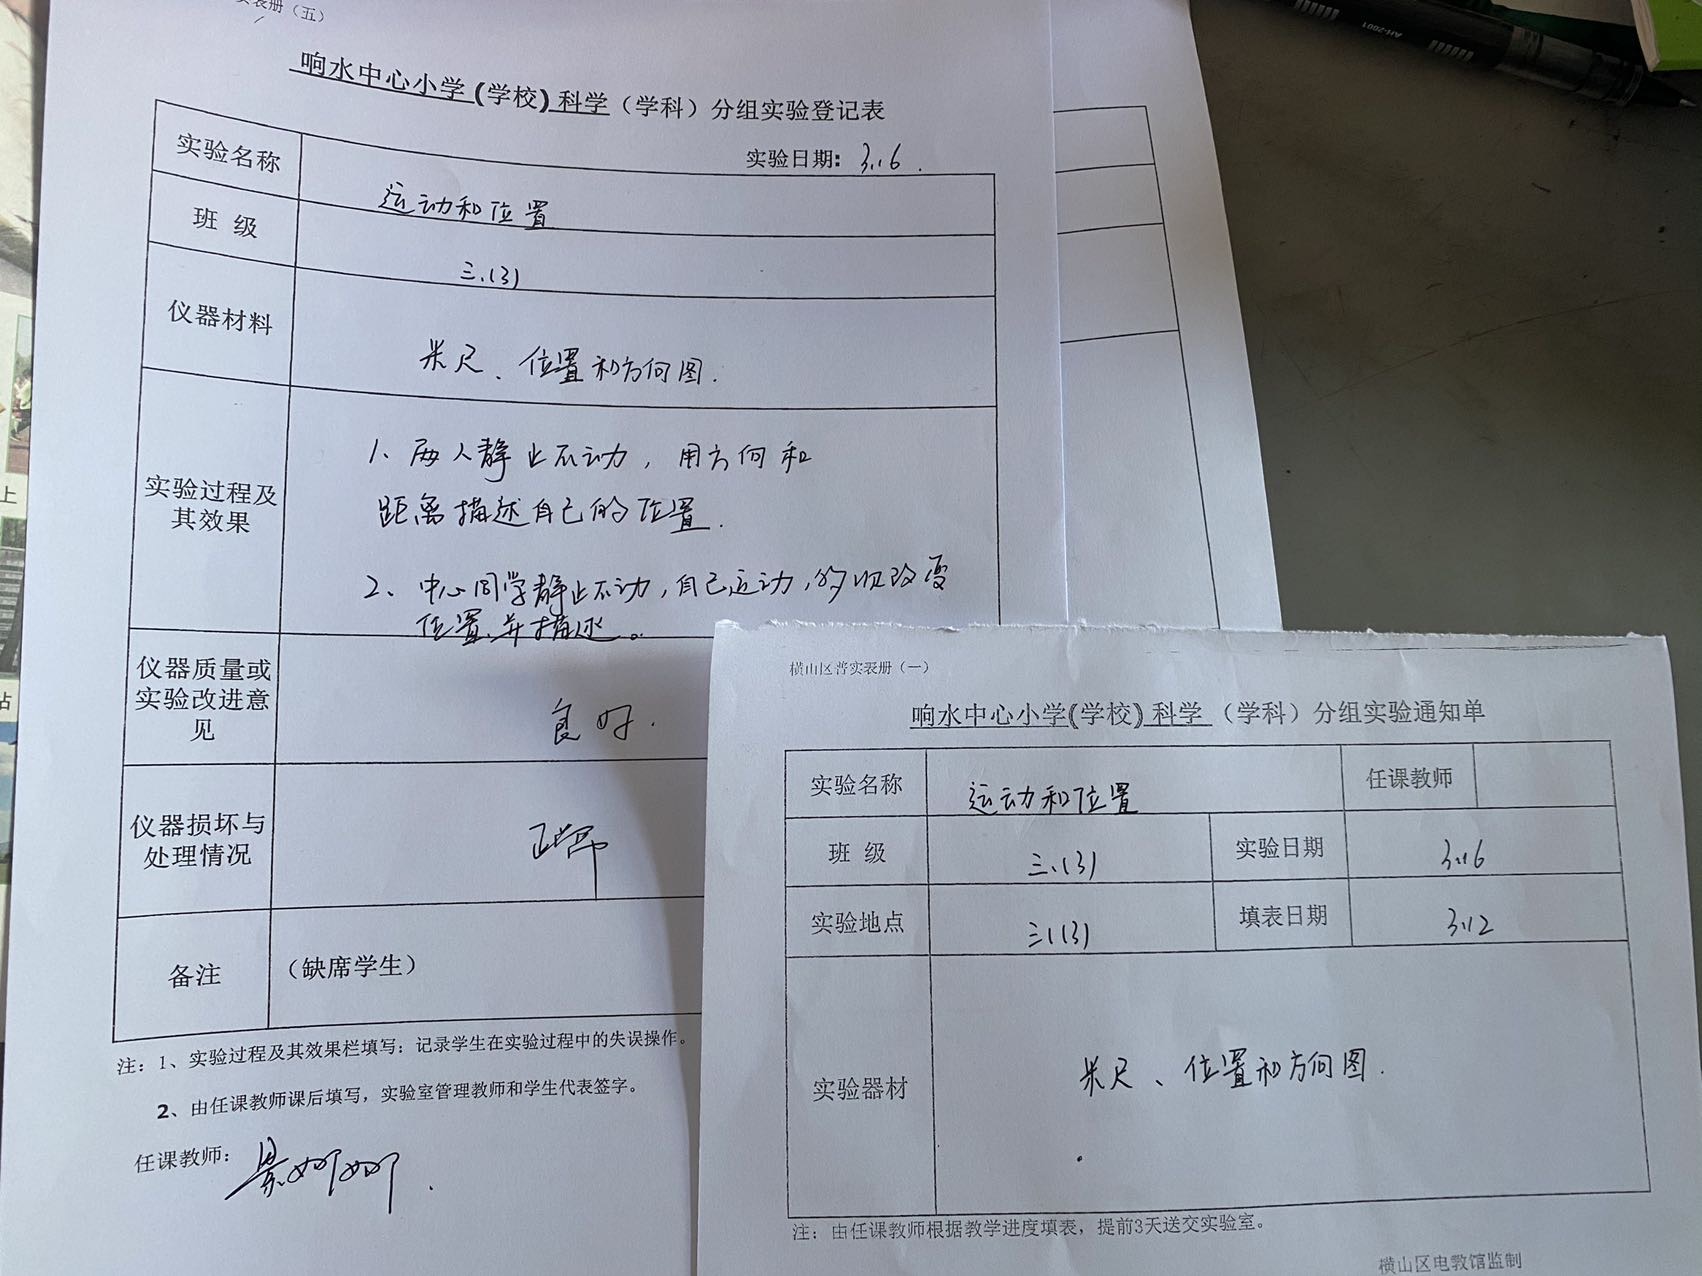 实表册（五）
响水中心小学(学校)科学（学科）分组实验登记表
实验日期：3.16.
实验名称 运动和位置
班 级 三.(3)
仪器材料 米尺、位置和方向图.
实验过程及其效果
1、两人静止不动，用方向和
距离描述自己的位置.
2、中心同学静止不动，自己运动，的以改变
位置，并描述。
仪器质量或
实验改进意
见
良好.
仪器损坏与
处理情况
正常
备注 （缺席学生）
注：1、实验过程及其效果栏填写：记录学生在实验过程中的失误操作。
2、由任课教师课后填写，实验室管理教师和学生代表签字。
任课教师：景娜娜.
横山区普实表册（一）
响水中心小学(学校)科学（学科）分组实验通知单
实验名称 运动和位置 任课教师
班 级 三.(3) 实验日期 3.16
实验地点 三(3) 填表日期 3.12
实验器材 米尺、位置和方向图.
注：由任课教师根据教学进度填表，提前3天送交实验室。
横山区电教馆监制
AH-2001